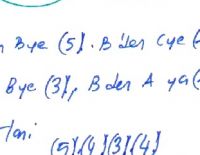 Bye (5). B'den C'ye (
Bye (3), B den A ya (
(5)(4)(3)(4)